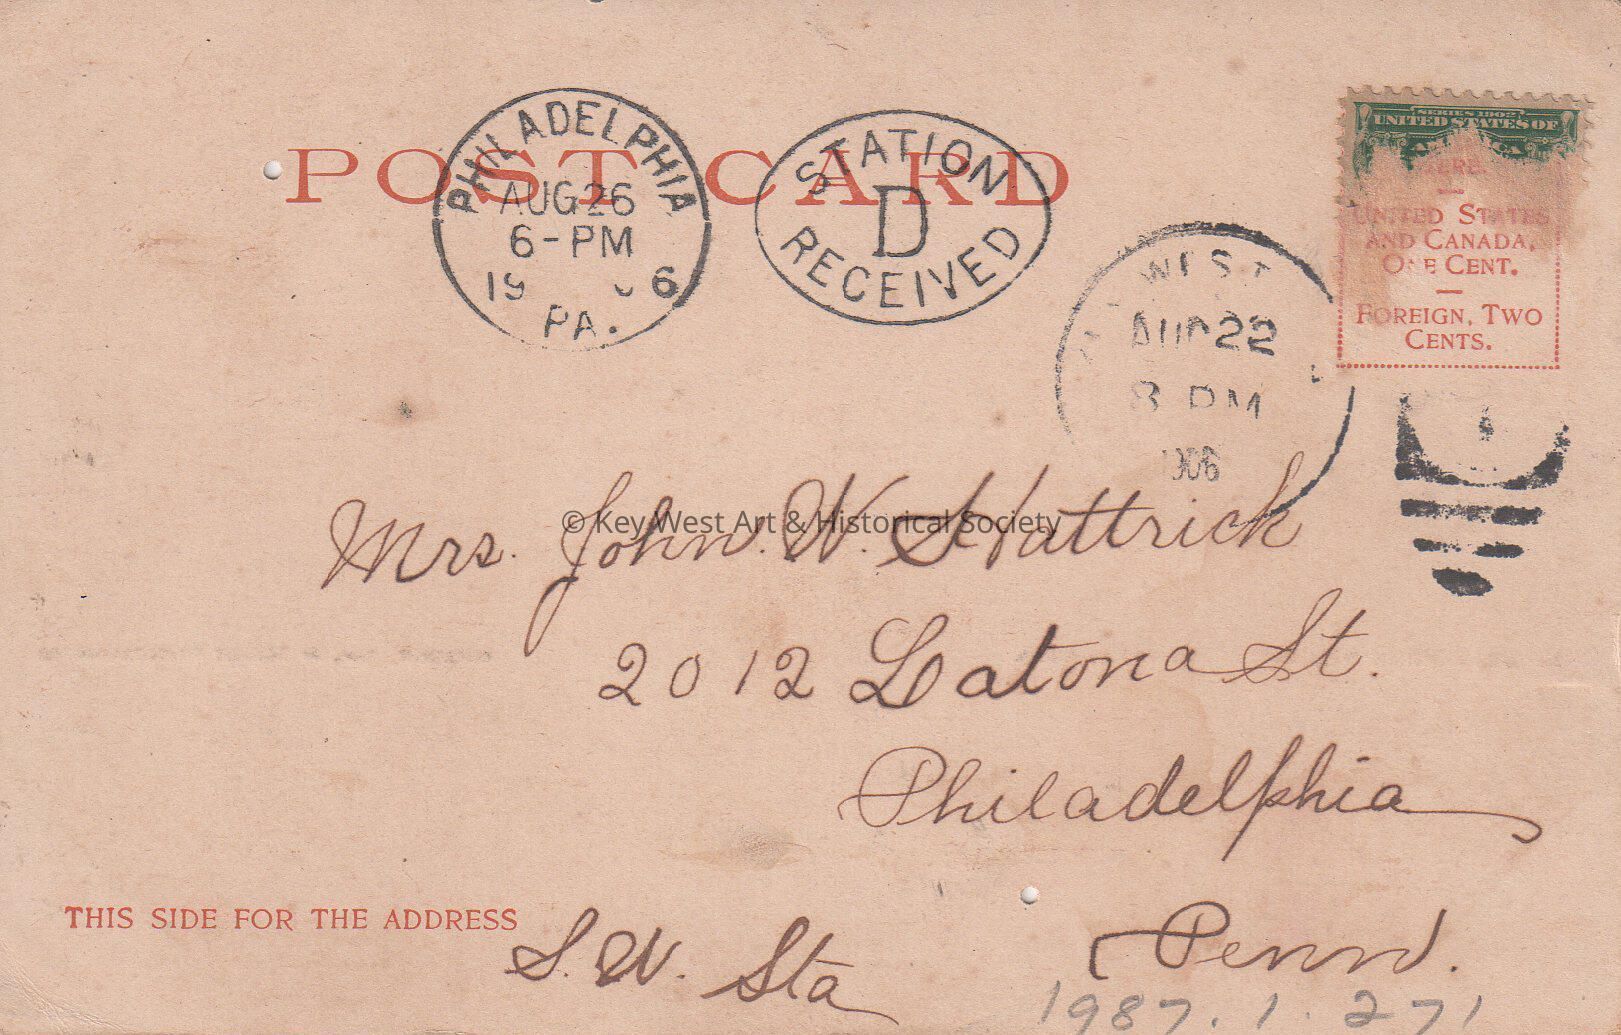 POST CARD
PHILADELPHIA
AUG 26
6-PM
19 6
PA.
STATION
D
RECEIVED
WEST
AUG 22
8 PM
1906
SERIES 1902
UNITED STATES OF
HERE.
UNITED STATES
AND CANADA,
ONE CENT.
FOREIGN, TWO
CENTS.
© Key West Art & Historical Society
Mrs. John. W. Hattrick
2012 Latona St.
Philadelphia
Penn.
THIS SIDE FOR THE ADDRESS
S. W. Sta
1987.1.271